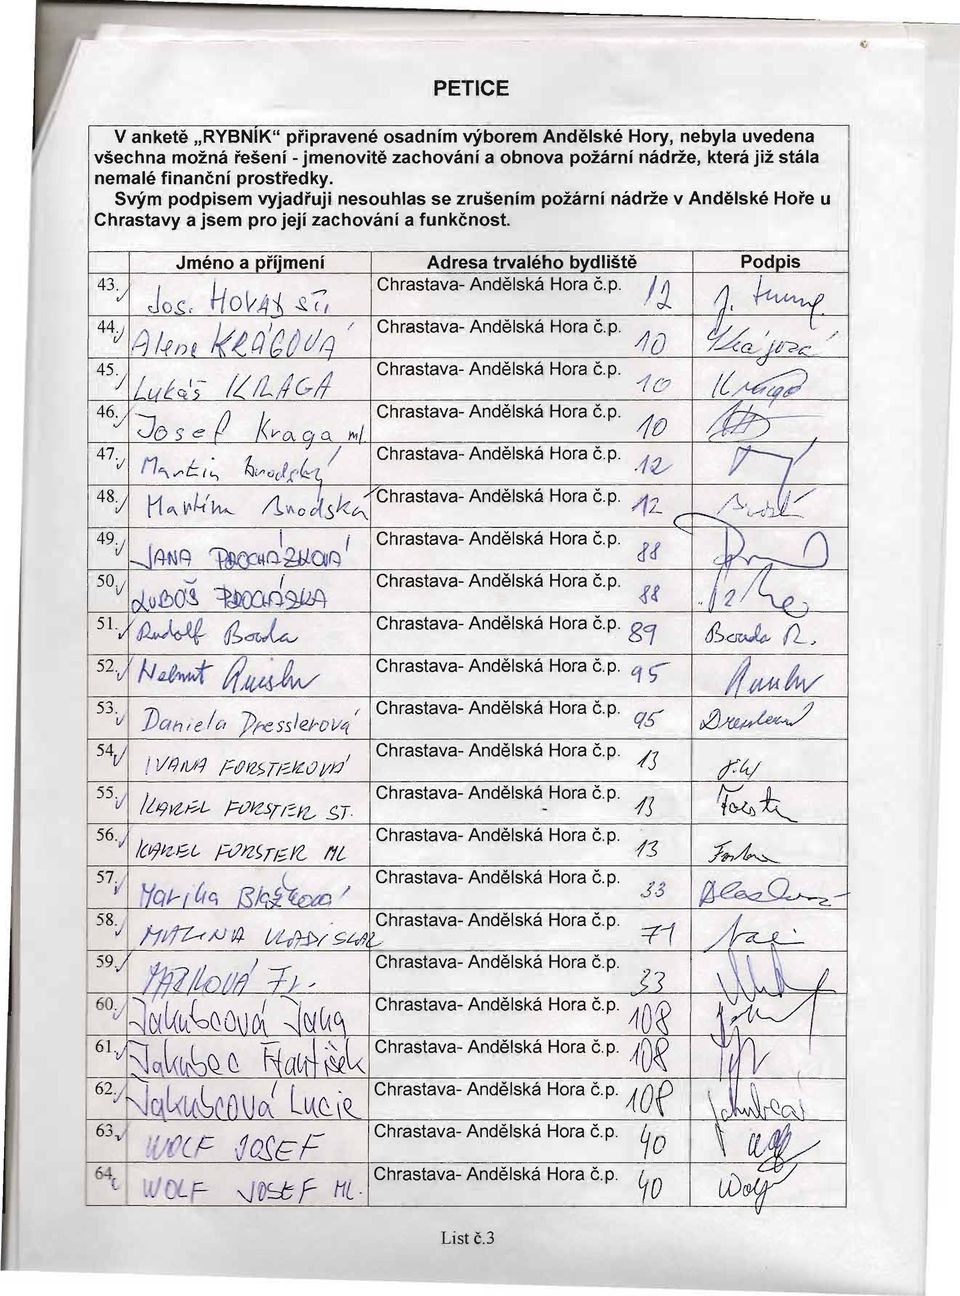 PETICE
V anketě „RYBNÍK“ připravené osadním výborem Andělské Hory, nebyla uvedena
všechna možná řešení - jmenovitě zachování a obnova požární nádrže, která již stála
nemalé finanční prostředky.
Svým podpisem vyjadřuji nesouhlas se zrušením požární nádrže v Andělské Hoře u
Chrastavy a jsem pro její zachování a funkčnost.
Jméno a příjmení Adresa trvalého bydliště Podpis
43. Jos. st. Chrastava- Andělská Hora č.p. 12
44. Alena KRÁGOVÁ Chrastava- Andělská Hora č.p. 10
45. Lukáš KRAGA Chrastava- Andělská Hora č.p. 10 Kraga
46. Josef Kraga ml. Chrastava- Andělská Hora č.p. 10
47. Martin Brodský Chrastava- Andělská Hora č.p. 12
48. Martina Brodská Chrastava- Andělská Hora č.p. 12
49. JANA PROCHÁZKOVÁ Chrastava- Andělská Hora č.p. 88
50. LUBOŠ PROCHÁZKA Chrastava- Andělská Hora č.p. 88
51. Rudolf Bouda Chrastava- Andělská Hora č.p. 89 Bouda R.
52. Helmut Chrastava- Andělská Hora č.p. 95
53. Daniela Presslerová Chrastava- Andělská Hora č.p. 95
54. IVANA FORSTEROVÁ Chrastava- Andělská Hora č.p. 13
55. KAREL FORSTER ST. Chrastava- Andělská Hora č.p. 13
56. KAREL FORSTER ML Chrastava- Andělská Hora č.p. 13
57. Marika Blažková Chrastava- Andělská Hora č.p. 33
58. MALINA VLADISLAV Chrastava- Andělská Hora č.p. 71
59. Fr. Chrastava- Andělská Hora č.p. 33
60. Jakubcová Jana Chrastava- Andělská Hora č.p. 108
61. Jakubec František Chrastava- Andělská Hora č.p. 108
62. Jakubcová Lucie Chrastava- Andělská Hora č.p. 108
63. WOLF JOSEF Chrastava- Andělská Hora č.p. 40
64. WOLF JOSEF ML. Chrastava- Andělská Hora č.p. 40 Wolf
List č.3